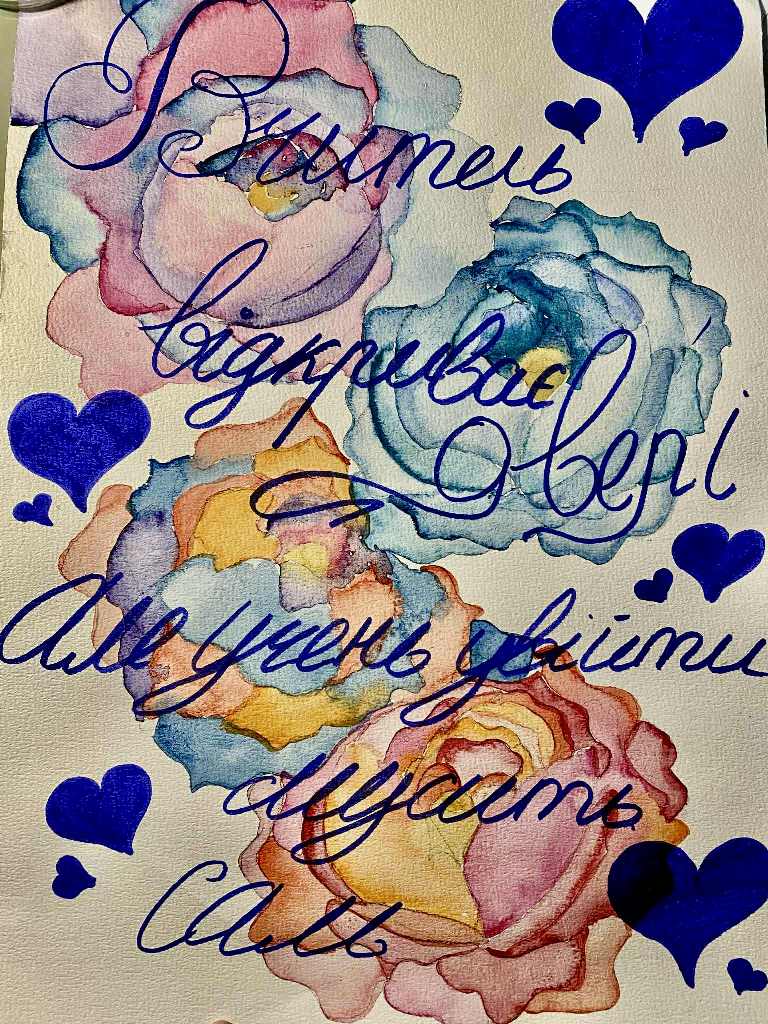 Вчитель
відкриває
двері
Але учень увійти
мусить
сам